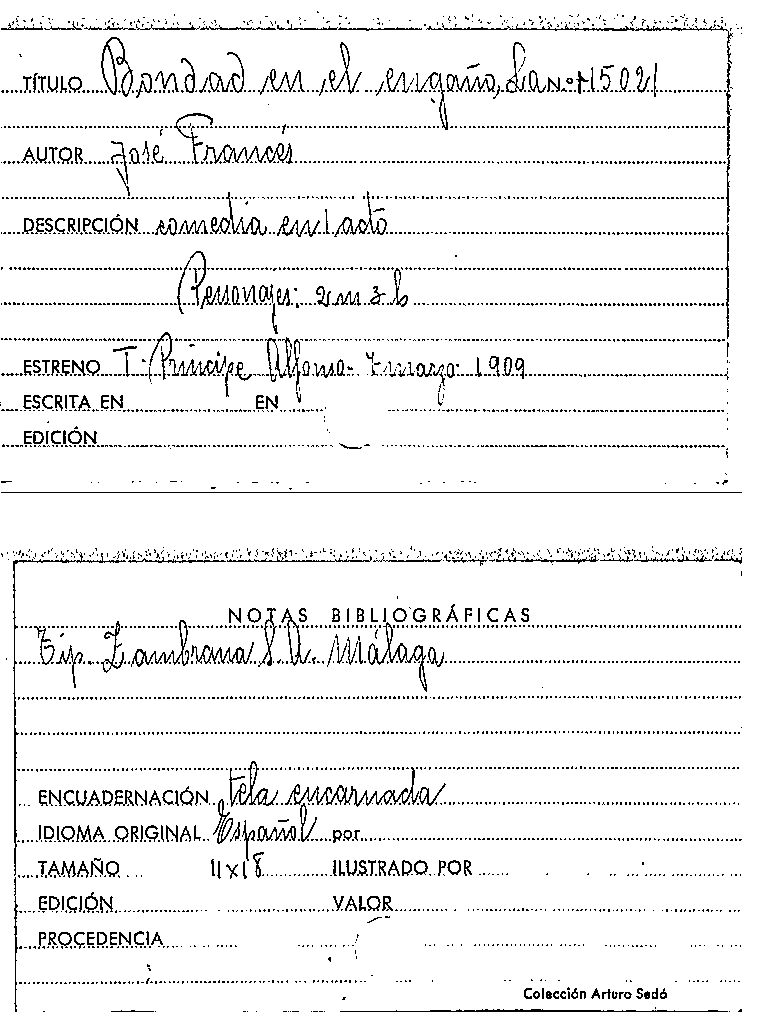 TÍTULO Bondad en el engaño, La N.º 15021
AUTOR José Francés
DESCRIPCIÓN comedia en 1 acto
Personajes: 2 m 3 h
ESTRENO T. Príncipe Alfonso - 7 marzo 1909
ESCRITA EN EN
EDICIÓN
NOTAS BIBLIOGRÁFICAS
Tip. Zambrana S. A. Málaga
ENCUADERNACIÓN tela encarnada
IDIOMA ORIGINAL Español por
TAMAÑO 11x18 ILUSTRADO POR
EDICIÓN VALOR
PROCEDENCIA
Colección Arturo Sedó